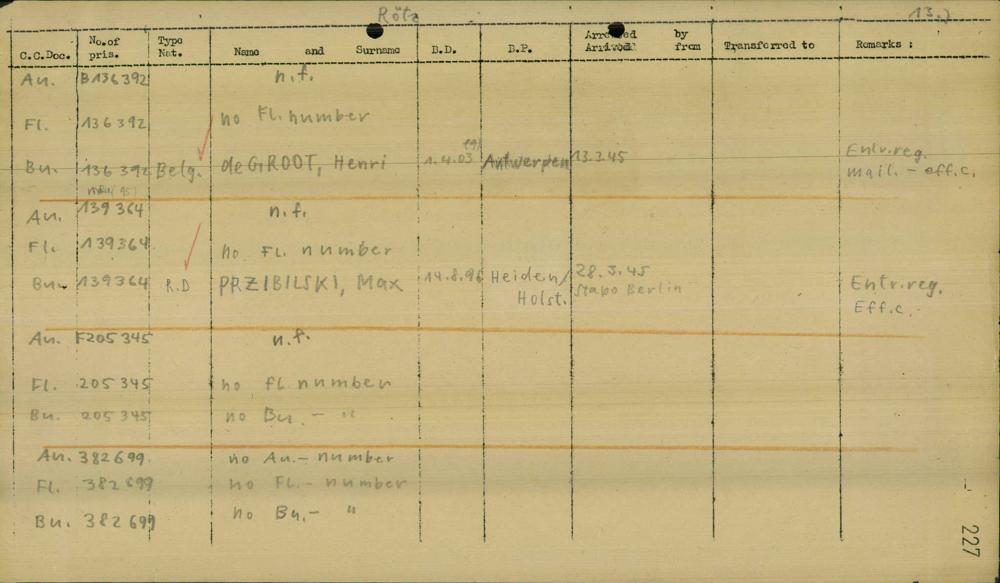 Rötz 13.)
C.C.Doc. No.of pris. Type Nat. Name and Surname B.D. B.P. Arrested Arrived by from Transferred to Remarks :
Au. B136392 n.f.
Fl. 136392 no Fl. number
Bu. 136392 Belg. de GROOT, Henri 1.4.03 Antwerpen 13.2.45 Entr.reg.
mail. - eff.c.
Au. 139364 n.f.
Fl. 139364 no Fl. number
Bu. 139364 R.D PRZIBILSKI, Max 14.8.96 Heiden/ Holst. 28.3.45 Stapo Berlin Entr.reg.
Eff.c.
Au. F205345 n.f.
Fl. 205345 no fl. number
Bu. 205345 no Bu. - "
Au. 382699. no Au.- number
Fl. 382699 no Fl.- number
Bu. 382699 no Bu.- "
227